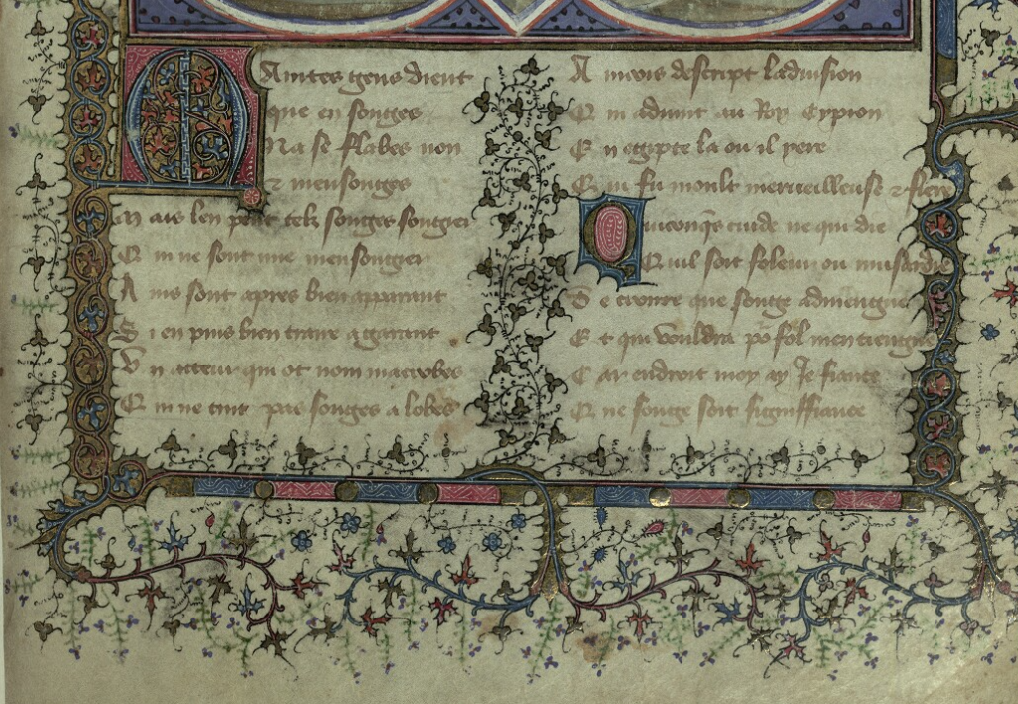 Maintes gens dient
que en songes
Na se flabes non
et mensonges
Mais len peut telz songes songier
Qui ne sont mie mensongier
Ains sont apres bien apparant
Si en puis bien traire a garant
Un acteur qui ot nom macrobes
Qui ne tint pas songes a lobes
Aincois descript la vision
Qui advint au Roy Cypion
En egipte la ou il yere
Qui fu moult merveilleuse et fiere
Quiconques cuide ne qui die
Quil soit foleur ou musardie
De croire que songe adviengne
Et qui vouldra po fol men tiengne
Car endroit moy ay Je fiance
Que songe soit signiffiance